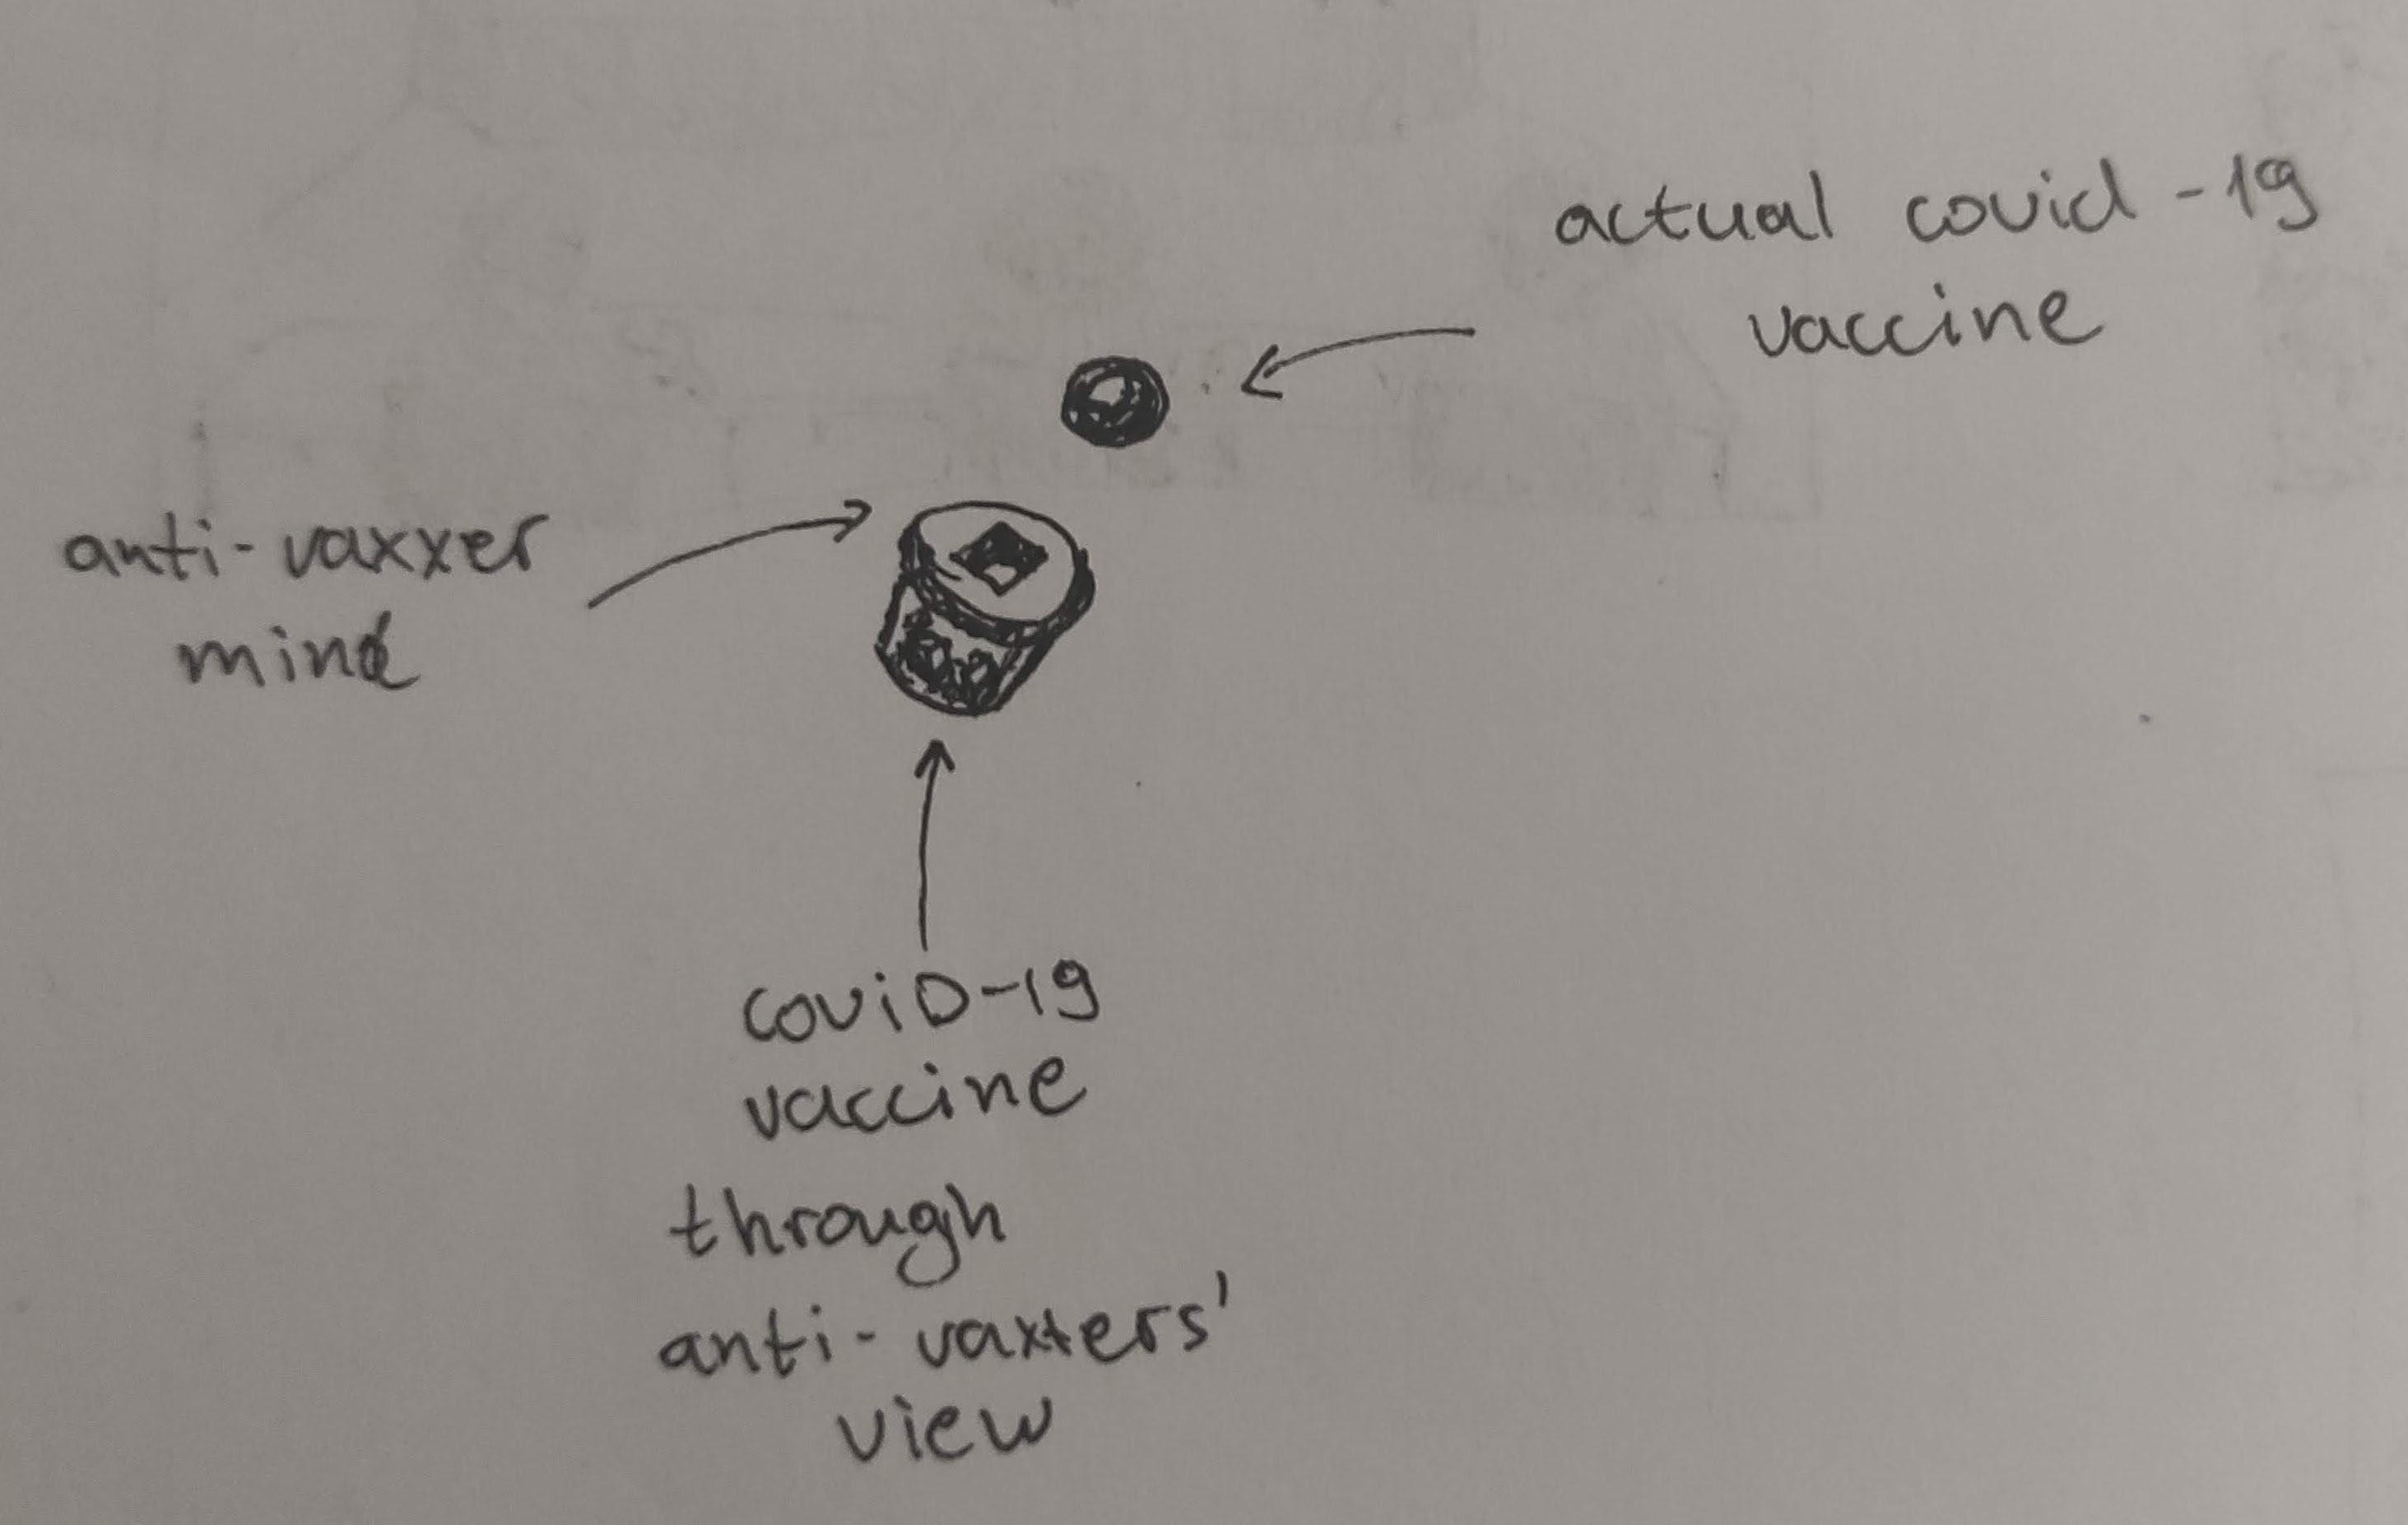 actual covid-19
vaccine
anti-vaxxer
mind
coviD-19
vaccine
through
anti-vaxxers'
view